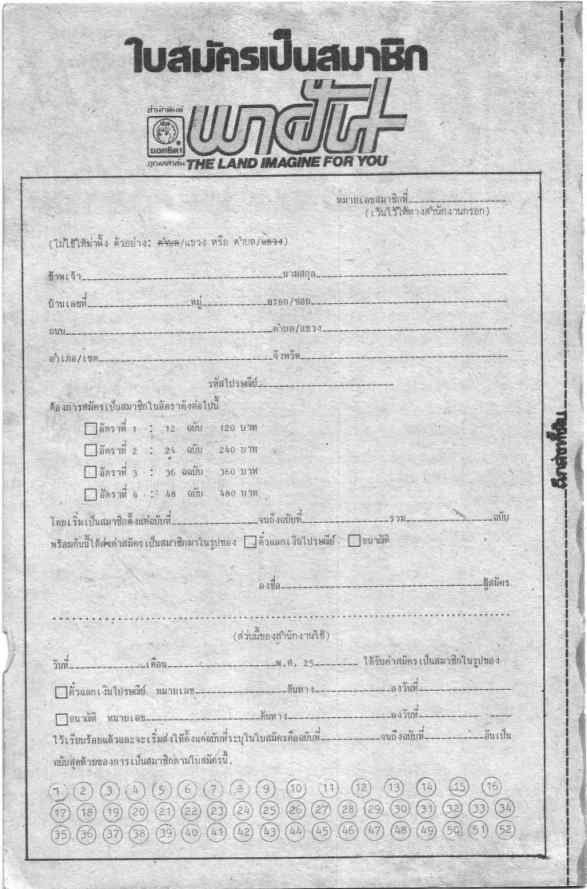 ใบสมัครเป็นสมาชิก
สำนักพิมพ์
พาฝัน
ยอดธิดา
THE LAND IMAGINE FOR YOU
หมายเลขสมาชิกที่
(เว้นไว้ให้ทางสำนักงานกรอก)
(ไม่ใช้ให้ฆ่าทิ้ง ตัวอย่าง: ตำบล/แขวง หรือ ตำบล/แขวง)
ข้าพเจ้า นามสกุล
บ้านเลขที่ หมู่ ตรอก/ซอย
ถนน ตำบล/แขวง
อำเภอ/เขต จังหวัด
รหัสไปรษณีย์
ต้องการสมัครเป็นสมาชิกในอัตราดังต่อไปนี้
อัตราที่ 1 : 12 ฉบับ 120 บาท
อัตราที่ 2 : 24 ฉบับ 240 บาท
อัตราที่ 3 : 36 ฉบับ 360 บาท
อัตราที่ 4 : 48 ฉบับ 480 บาท
โดยเริ่มเป็นสมาชิกตั้งแต่ฉบับที่ จนถึงฉบับที่ รวม ฉบับ
พร้อมกับนี้ได้ส่งค่าสมัครเป็นสมาชิกมาในรูปของ ตั๋วแลกเงินไปรษณีย์ ธนาณัติ
ลงชื่อ ผู้สมัคร
(ส่วนนี้ของสำนักงานใช้)
วันที่ เดือน พ.ศ. 25 ได้รับค่าสมัครเป็นสมาชิกในรูปของ
ตั๋วแลกเงินไปรษณีย์ หมายเลข ต้นทาง ลงวันที่
ธนาณัติ หมายเลข ต้นทาง ลงวันที่
ไว้เรียบร้อยแล้วและจะเริ่มส่งให้ตั้งแต่ฉบับที่ระบุในใบสมัครคือฉบับที่ จนถึงฉบับที่ อันเป็น
ฉบับสุดท้ายของการเป็นสมาชิกตามใบสมัครนี้
1 2 3 4 5 6 7 8 9 10 11 12 13 14 15 16
17 18 19 20 21 22 23 24 25 26 27 28 29 30 31 32 33 34
35 36 37 38 39 40 41 42 43 44 45 46 47 48 49 50 51 52